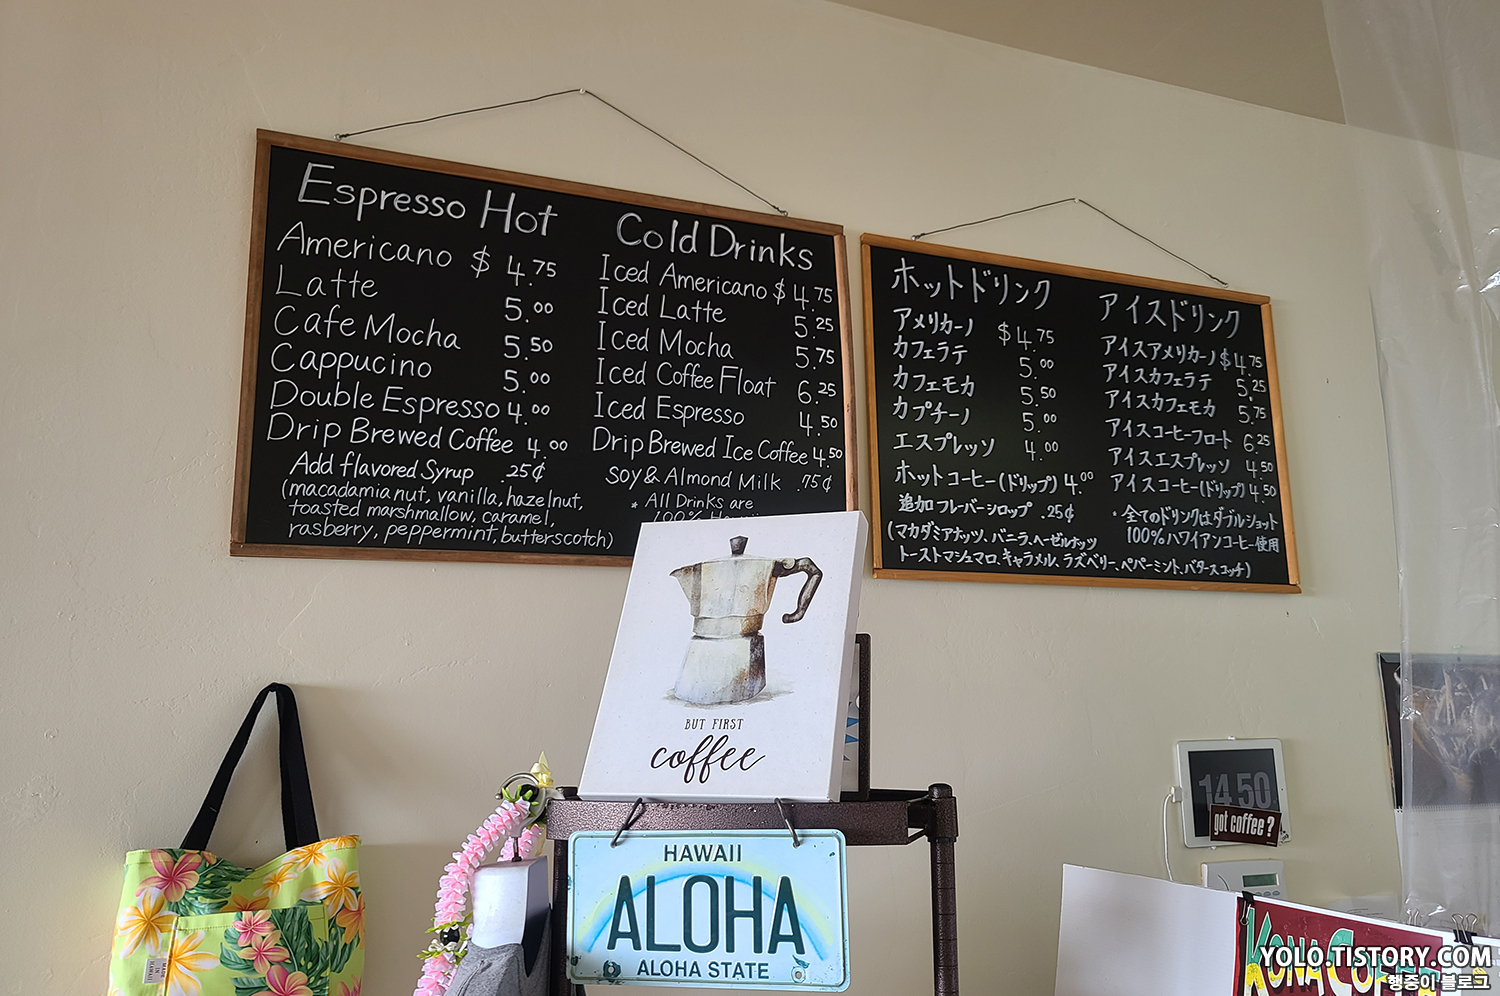 Espresso Hot
Americano $ 4.75
Latte 5.00
Cafe Mocha 5.50
Cappucino 5.00
Double Espresso 4.00
Drip Brewed Coffee 4.00
Add flavored Syrup .25¢
(macadamia nut, vanilla, hazelnut,
toasted marshmallow, caramel,
rasberry, peppermint, butterscotch)
Cold Drinks
Iced Americano $ 4.75
Iced Latte 5.25
Iced Mocha 5.75
Iced Coffee Float 6.25
Iced Espresso 4.50
Drip Brewed Ice Coffee 4.50
Soy & Almond Milk .75¢
* All Drinks are
100%
ホットドリンク
アメリカーノ $4.75
カフェラテ 5.00
カフェモカ 5.50
カプチーノ 5.00
エスプレッソ 4.00
ホットコーヒー(ドリップ) 4.00
追加フレーバーシロップ .25¢
(マカダミアナッツ、バニラ、ヘーゼルナッツ
トーストマシュマロ、キャラメル、ラズベリー、ペパーミント、バタースコッチ)
アイスドリンク
アイスアメリカーノ $4.75
アイスカフェラテ 5.25
アイスカフェモカ 5.75
アイスコーヒーフロート 6.25
アイスエスプレッソ 4.50
アイスコーヒー(ドリップ) 4.50
・全てのドリンクはダブルショット
100%ハワイアンコーヒー使用
BUT FIRST
coffee
HAWAII
ALOHA
ALOHA STATE
MADE IN HAWAII
14 50
got coffee?
KONA COFFEE
YOLO.TISTORY.COM
행중이 블로그